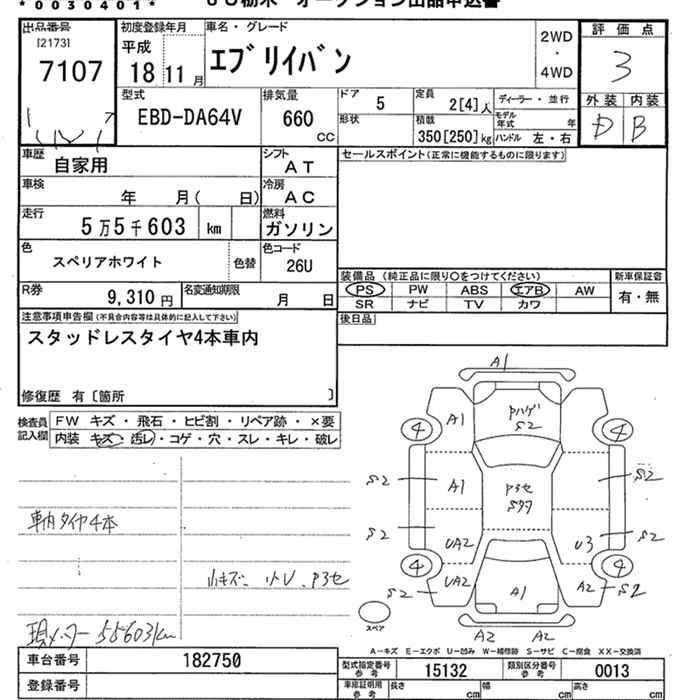 *0030401*
JU栃木 オークション出品申込書
出品番号
[2173]
7107
初度登録年月
平成
18 11 月
車名・グレード
エブリイバン
2WD
・
4WD
評価点
3
外装 内装
D B
型式
EBD-DA64V
排気量
660
CC
ドア
5
形状
定員
2[4]人
積載
350[250]kg
ディーラー・並行
モデル年式 年
ハンドル 左・右
車歴
自家用
シフト
AT
セールスポイント(正常に機能するものに限ります)
車検
年 月( 日)
冷房
AC
走行
5万5千603 km
燃料
ガソリン
色
スペリアホワイト
色替
色コード
26U
装備品 (純正品に限り○をつけてください)
PS PW ABS エアB AW
SR ナビ TV カワ
新車保証書
有・無
R券
9,310円
名変通知期限
月 日
後日品
注意事項申告欄(不具合内容等は具体的に記入して下さい)
スタッドレスタイヤ4本車内
修復歴 有〔箇所 〕
検査員記入欄
FW キズ・飛石・ヒビ割・リペア跡・×要
内装 キズ・汚レ・コゲ・穴・スレ・キレ・破レ
車内タイヤ4本
小キズ、小U、P3セ
現メーター55603km
A1
A1
Pハゲ
S2
4
4
S2
A1
P3セ
S2
S2
UA2
U3
S2
4
UA2
4
S2
A1
A2
S2
スペア
A2 A2
A-キズ E-エクボ U-凹み W-補修跡 S-サビ C-腐食 XX-交換済
車台番号
182750
登録番号
型式指定番号
参考
15132
類別区分番号
参考
0013
車庫証明用
参考
長さ cm
幅 cm
高さ cm